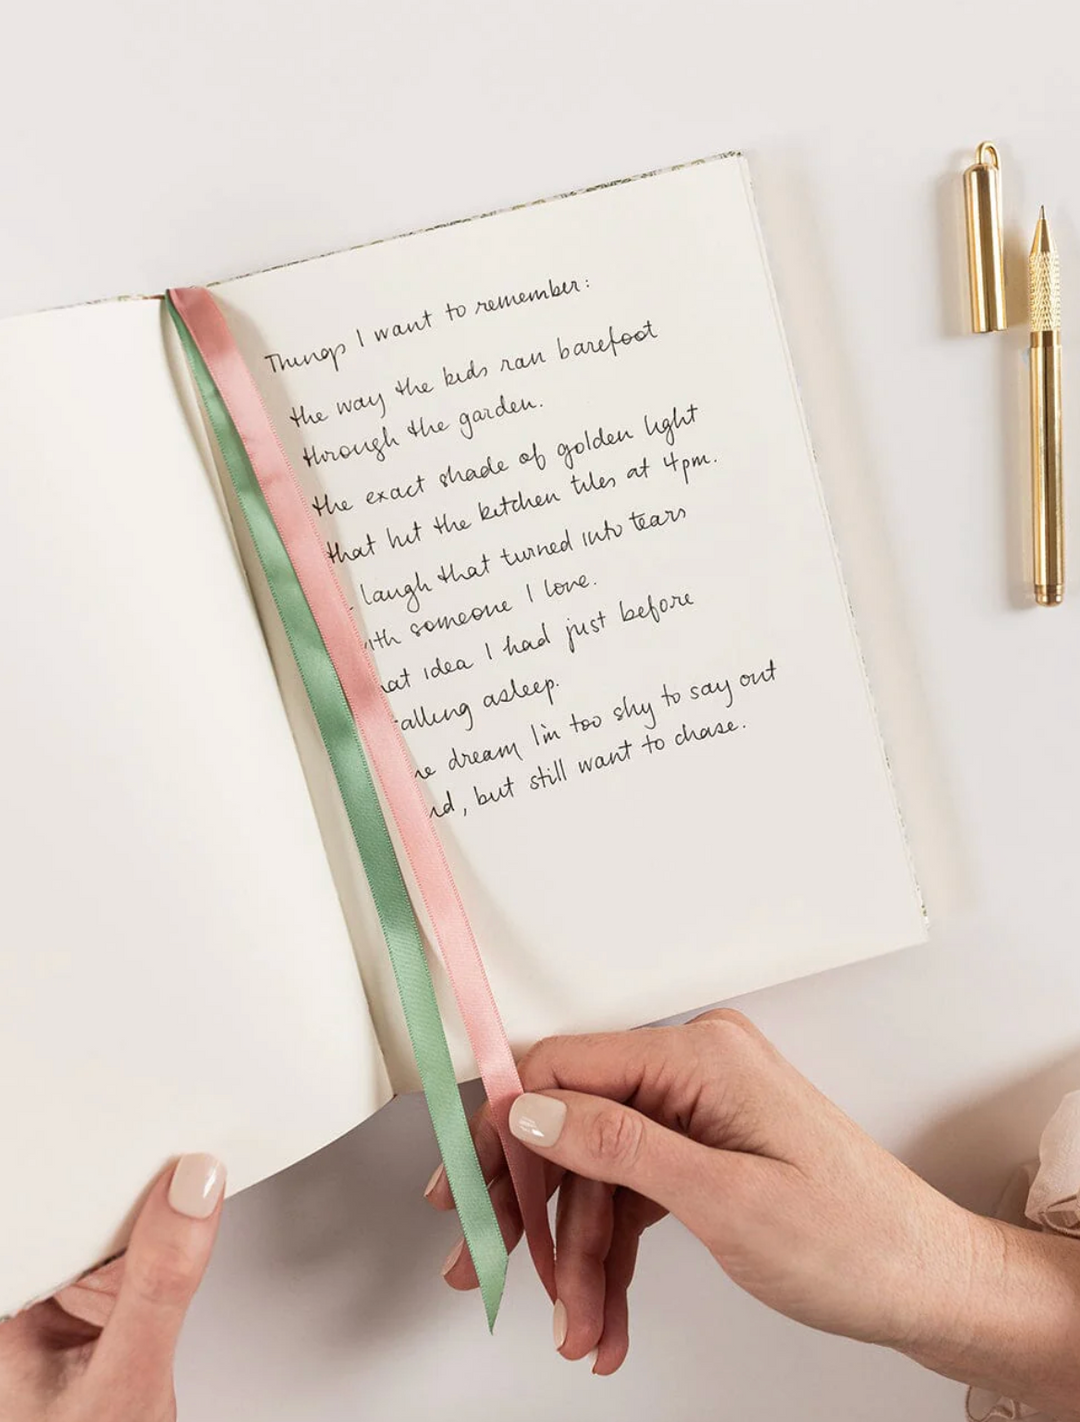 Things I want to remember:
the way the kids ran barefoot
through the garden.
the exact shade of golden light
that hit the kitchen tiles at 4pm.
laugh that turned into tears
ith someone I love.
at idea I had just before
alling asleep.
e dream I'm too shy to say out
d, but still want to chase.